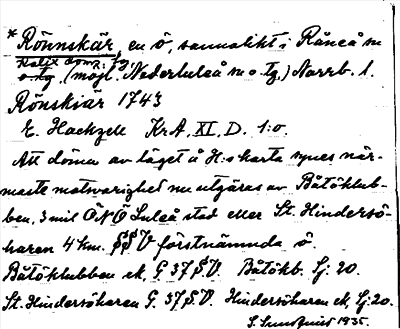 * Rönnskär, en ö, sannolikt i Råneå sn
Kalix domz. fg.
o. tg. (möjl. Nederluleå sn o. tg.) Norrb. l.
Rönskiär 1743
E. Hackzell KrA. XI. D. 1:o.
Att döma av läget å H:s karta synes när-
maste motsvarighet nu utgöras av Båtöklub-
ben, 3 mil ÖNÖ Luleå stad eller St. Hindersö-
haren 4 km. SSV förstnämnda ö.
Båtöklubben ek. G 37 S.V. Båtökb. Sj: 20.
St. Hindersöharen G. 37 S.V. Hindersöharen ek, Sj: 20.
S. Sundquist 1935.